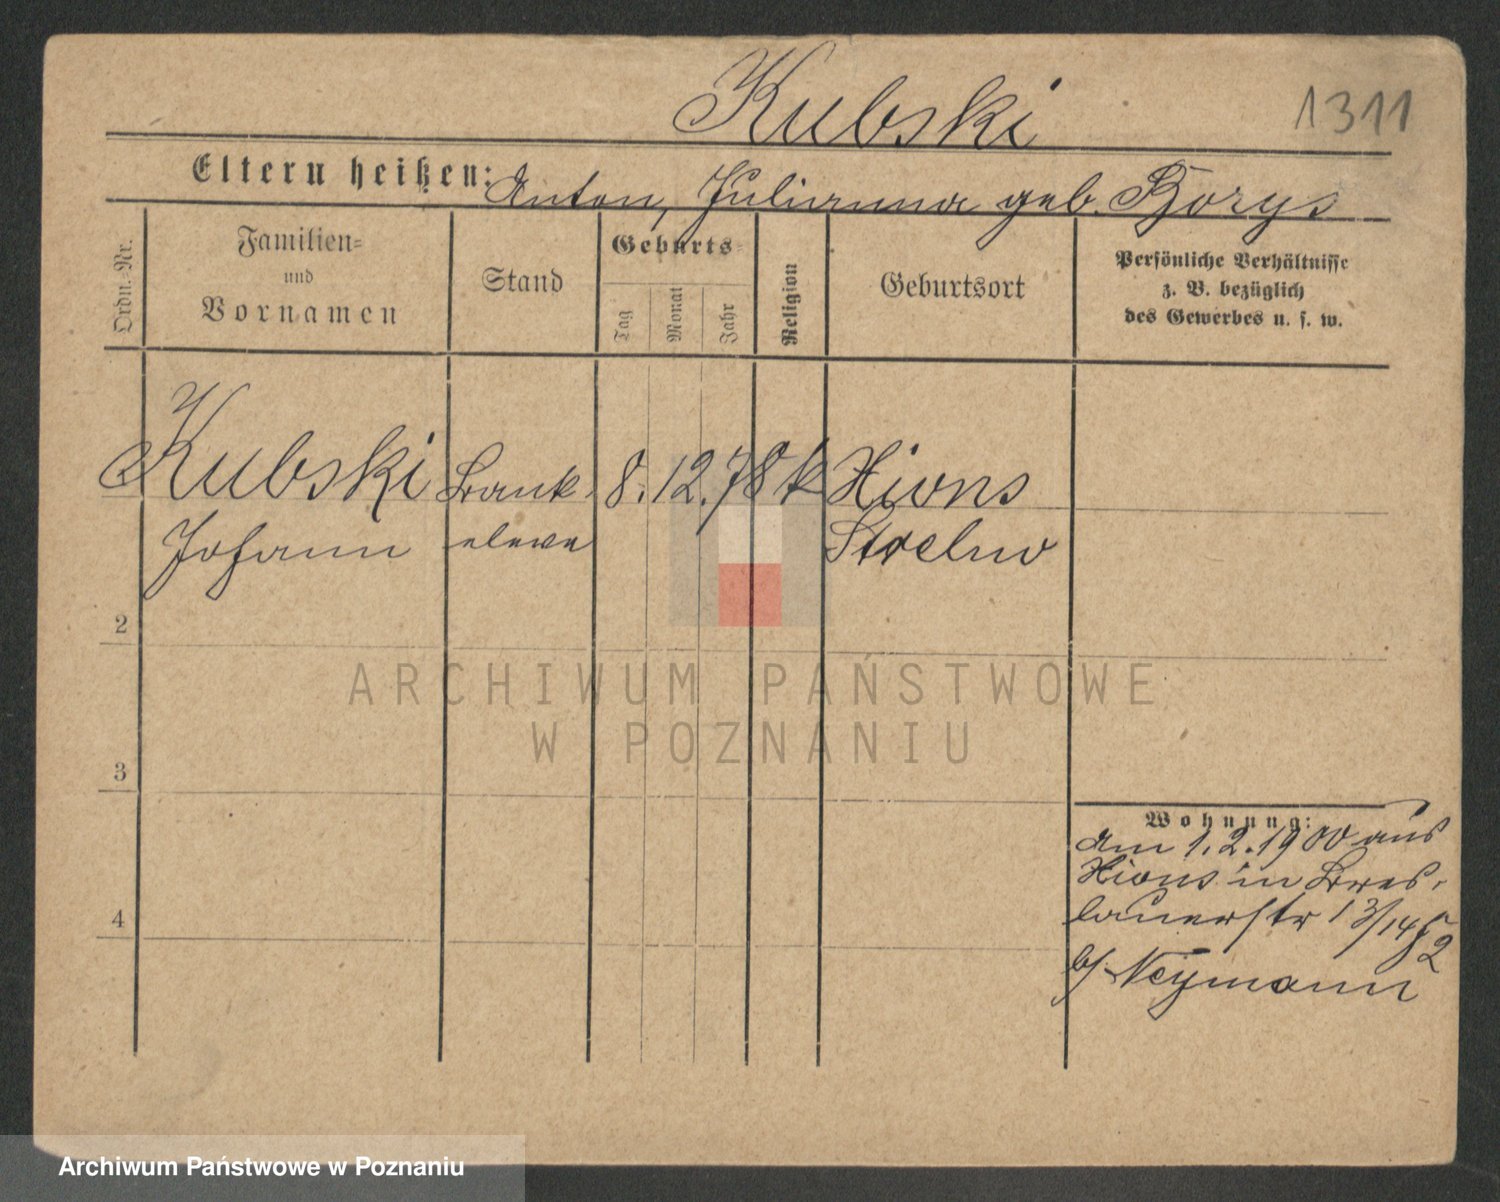 Kubski
1311
Eltern heißen: Anton, Julianna geb. Borys
Ordn.-Nr.
Familien-
und
Vornamen
Stand
Geburts-
Tag
Monat
Jahr
Religion
Geburtsort
Persönliche Verhältnisse
z. B. bezüglich
des Gewerbes u. s. w.
Kubski Bank 8. 12. 78 k Xions
Johann eleve
2
3
4
Wohnung:
am 1.2.1900 aus
Xions in Bres-
lauerstr 13/14
b/ Neymann
ARCHIWUM PAŃSTWOWE
W POZNANIU
Archiwum Państwowe w Poznaniu